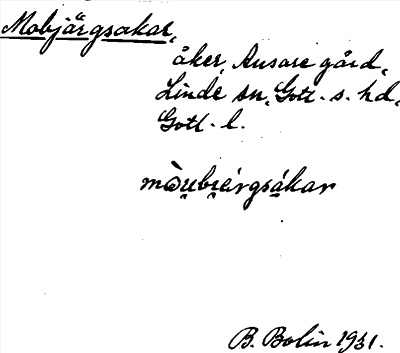 Mobjärgsakar,
åker, Ansare gård,
Linde sn, Gotl. s. hd,
Gotl. l.
mòu̯bi̯érgsákar
B. Bolin 1931.